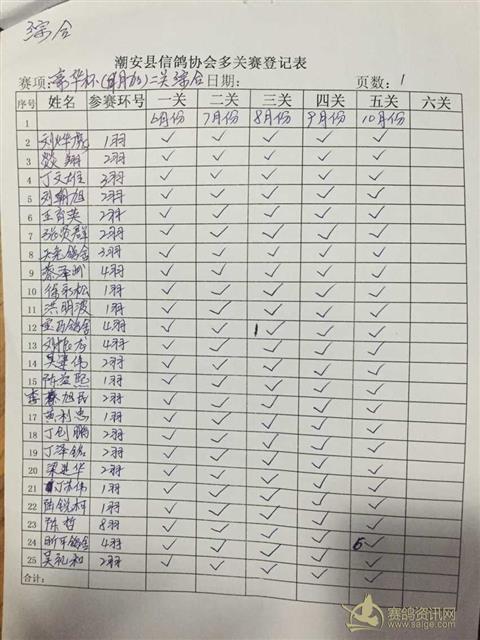 综合
潮安县信鸽协会多关赛登记表
赛项:豪华杯(每月加)二关综合 日期: 页数:1
序号 姓名 参赛环号 一关 二关 三关 四关 五关 六关
1 6月份 7月份 8月份 9月份 10月份
2 刘烨彪 1羽 ✓ ✓ ✓ ✓ ✓
3 翔 2羽 ✓ ✓ ✓ ✓ ✓
4 丁文雄 3羽 ✓ ✓ ✓ ✓ ✓
5 刘朝旭 2羽 ✓ ✓ ✓ ✓ ✓
6 王育英 2羽 ✓ ✓ ✓ ✓ ✓
7 张贤群 2羽 ✓ ✓ ✓ ✓ ✓
8 天光鸽舍 3羽 ✓ ✓ ✓ ✓ ✓
9 蔡泽 4羽 ✓ ✓ ✓ ✓ ✓
10 徐永松 1羽 ✓ ✓ ✓ ✓ ✓
11 洪明波 1羽 ✓ ✓ ✓ ✓ ✓
12 鸽舍 4羽 ✓ ✓ 1 ✓ ✓ ✓
13 刘 龙 4羽 ✓ ✓ ✓ ✓ ✓
14 吴 伟 2羽 ✓ ✓ ✓ ✓ ✓
15 陈益熙 1羽 ✓ ✓ ✓ ✓ ✓
李 旭民 2羽 ✓ ✓ ✓ ✓ ✓
17 黄利忠 1羽 ✓ ✓ ✓ ✓ ✓
18 丁创鹏 2羽 ✓ ✓ ✓ ✓ ✓
19 丁泽铭 2羽 ✓ ✓ ✓ ✓ ✓
20 梁进华 2羽 ✓ ✓ ✓ ✓ ✓
21 丁苏伟 1羽 ✓ ✓ ✓ ✓ ✓
22 陆锐利 1羽 ✓ ✓ ✓ ✓ ✓
23 陈哲 8羽 ✓ ✓ ✓ ✓ ✓
24 昕平鸽舍 4羽 ✓ ✓ ✓ ✓ 5 ✓
25 吴礼和 2羽 ✓ ✓ ✓ ✓ ✓
合计:
赛鸽资讯网
www.saige.com